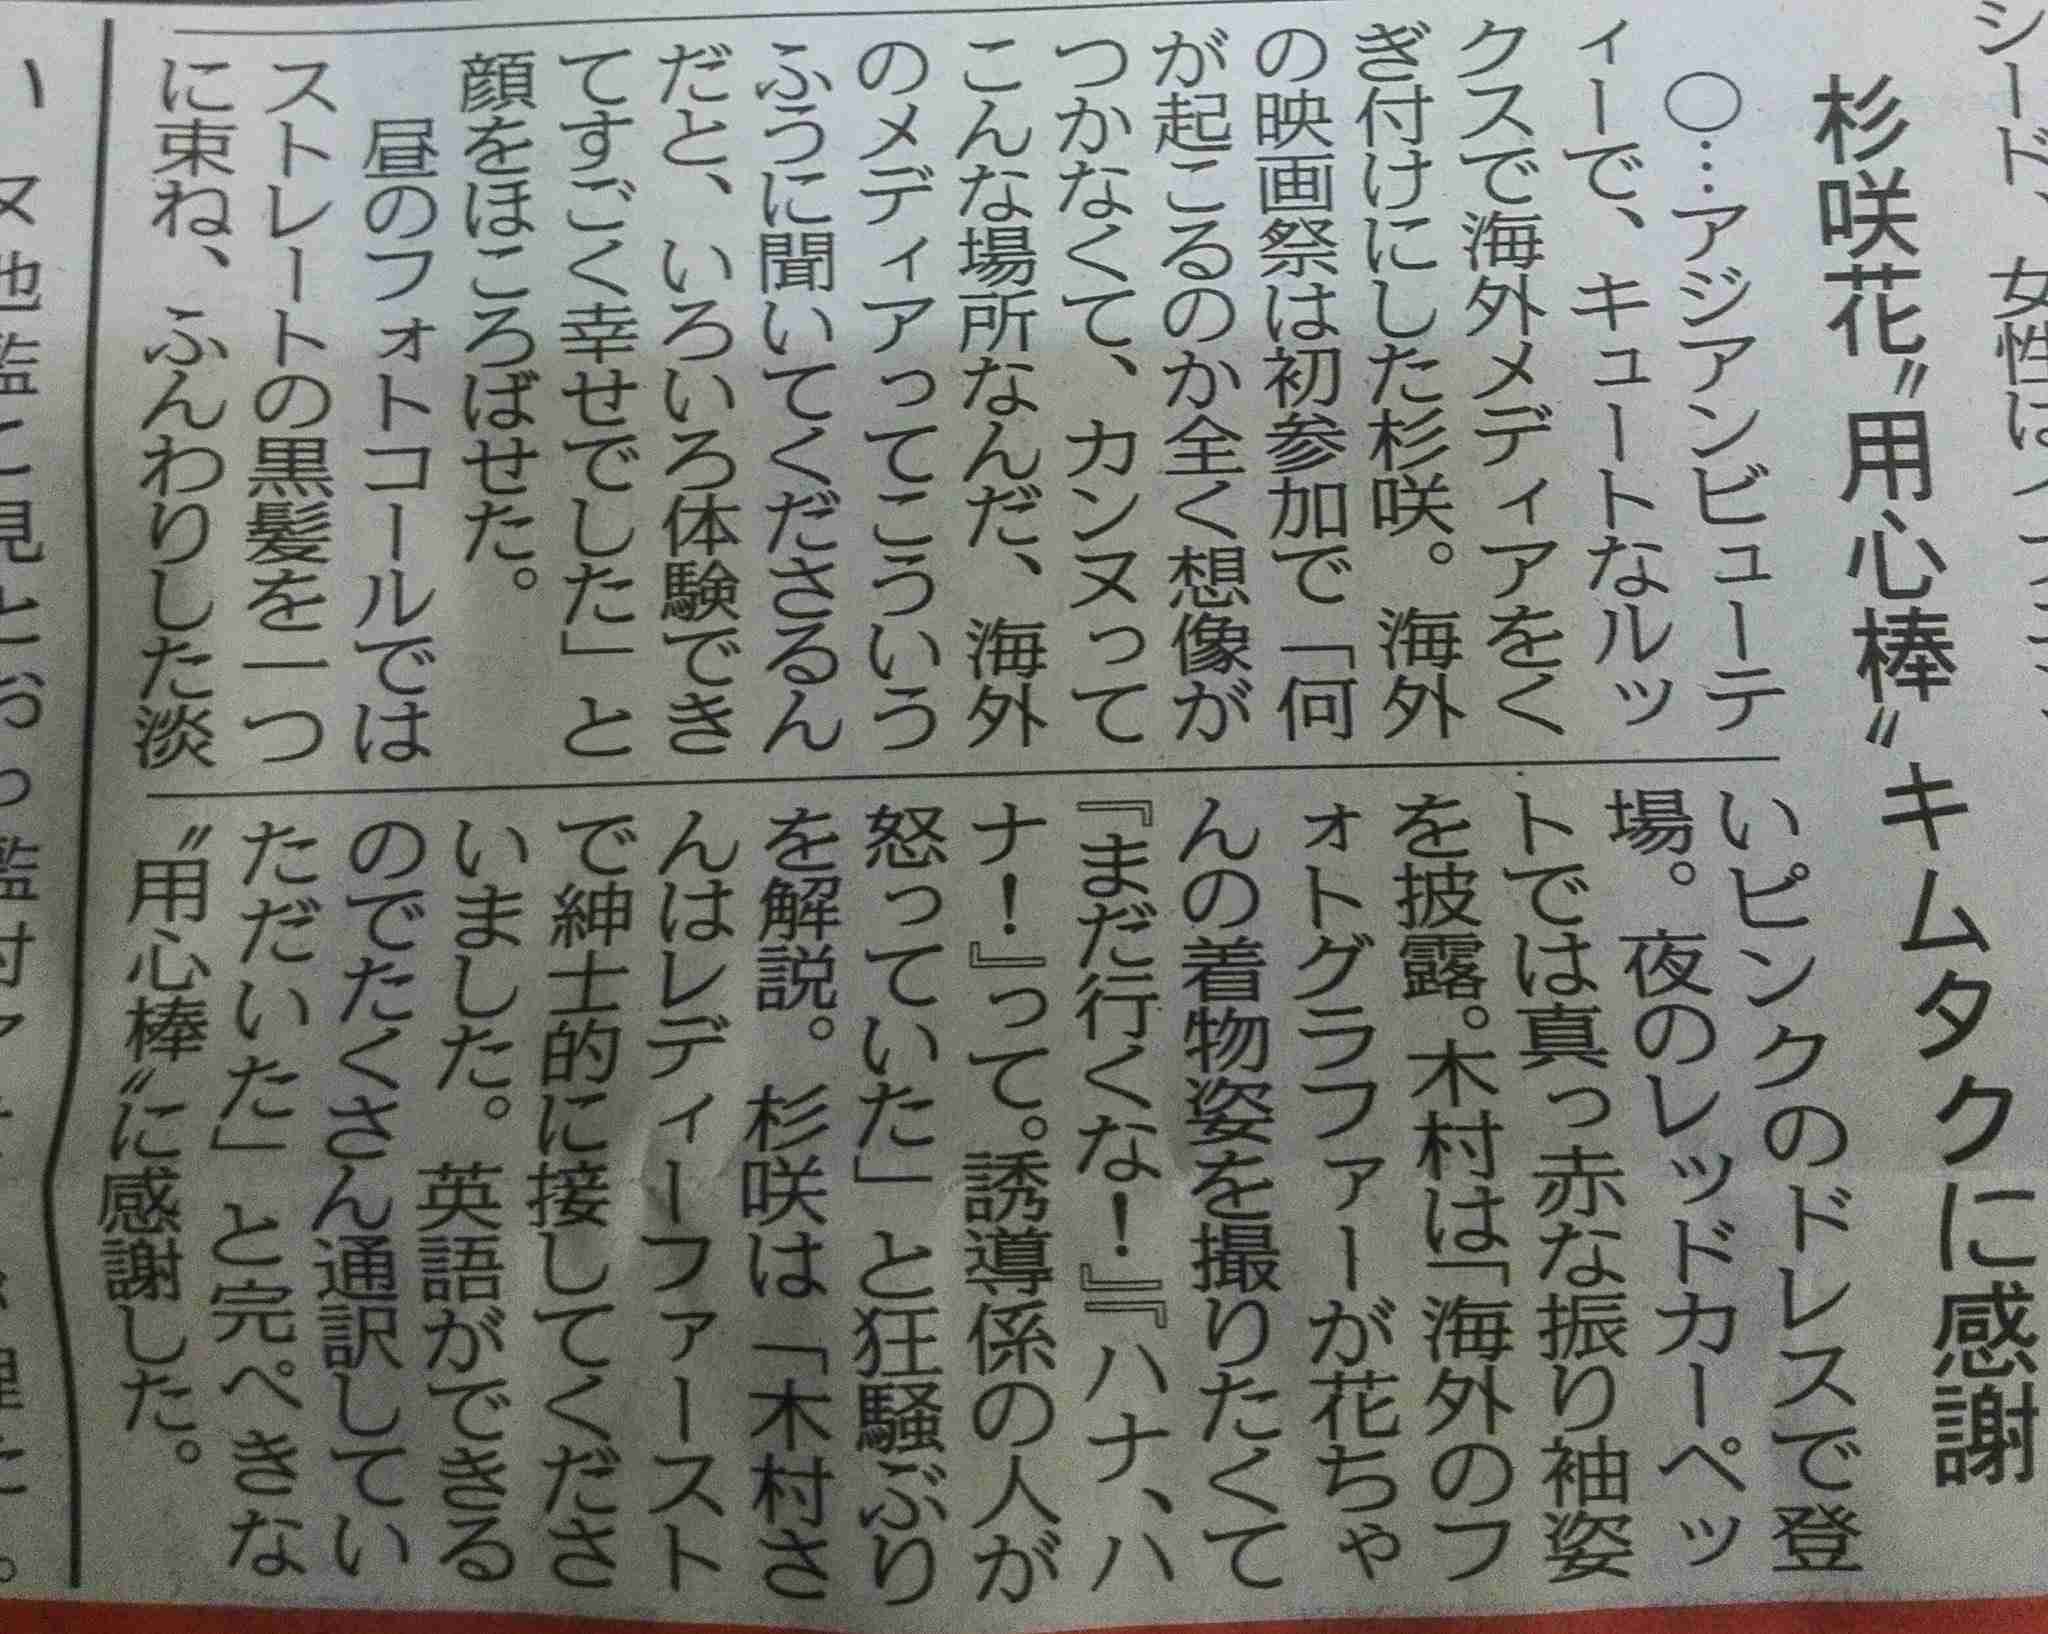 シード、女性は
杉咲花〝用心棒〟キムタクに感謝
〇…アジアンビューテ
ィーで、キュートなルッ
クスで海外メディアをく
ぎ付けにした杉咲。海外
の映画祭は初参加で「何
が起こるのか全く想像が
つかなくて、カンヌって
こんな場所なんだ、海外
のメディアってこういう
ふうに聞いてくださるん
だと、いろいろ体験でき
てすごく幸せでした」と
顔をほころばせた。
昼のフォトコールでは
ストレートの黒髪を一つ
に束ね、ふんわりした淡
いピンクのドレスで登
場。夜のレッドカーペッ
トでは真っ赤な振り袖姿
を披露。木村は「海外のフ
ォトグラファーが花ちゃ
んの着物姿を撮りたくて
『まだ行くな!』『ハナ、ハ
ナ!』って。誘導係の人が
怒っていた」と狂騒ぶり
を解説。杉咲は「木村さ
んはレディーファースト
で紳士的に接してくださ
いました。英語ができる
のでたくさん通訳してい
ただいた」と完ぺきな
〝用心棒〟に感謝した。